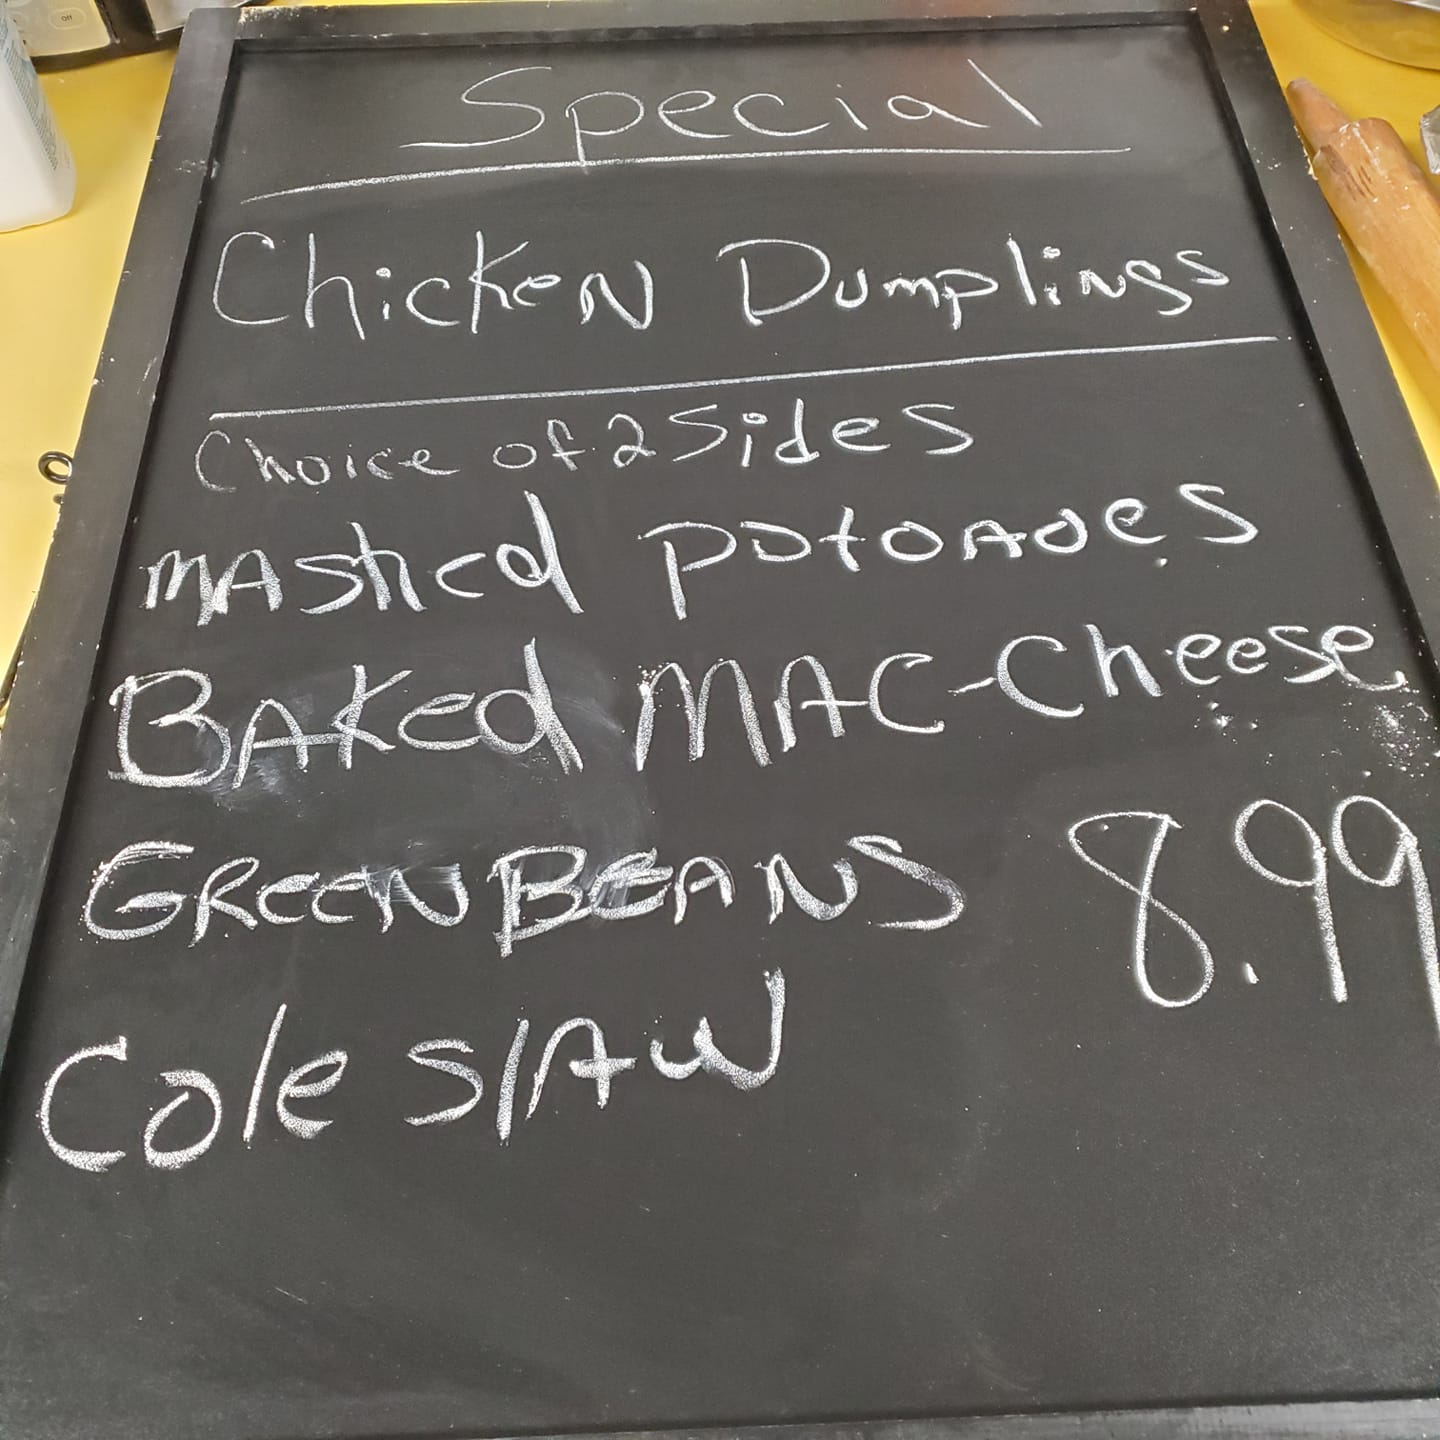 Off
Special
Chicken Dumplings
Choice of 2 Sides
MAshed potoAoes
BAKed MAC-Cheese
GREEN BEANS 8.99
Cole slAw